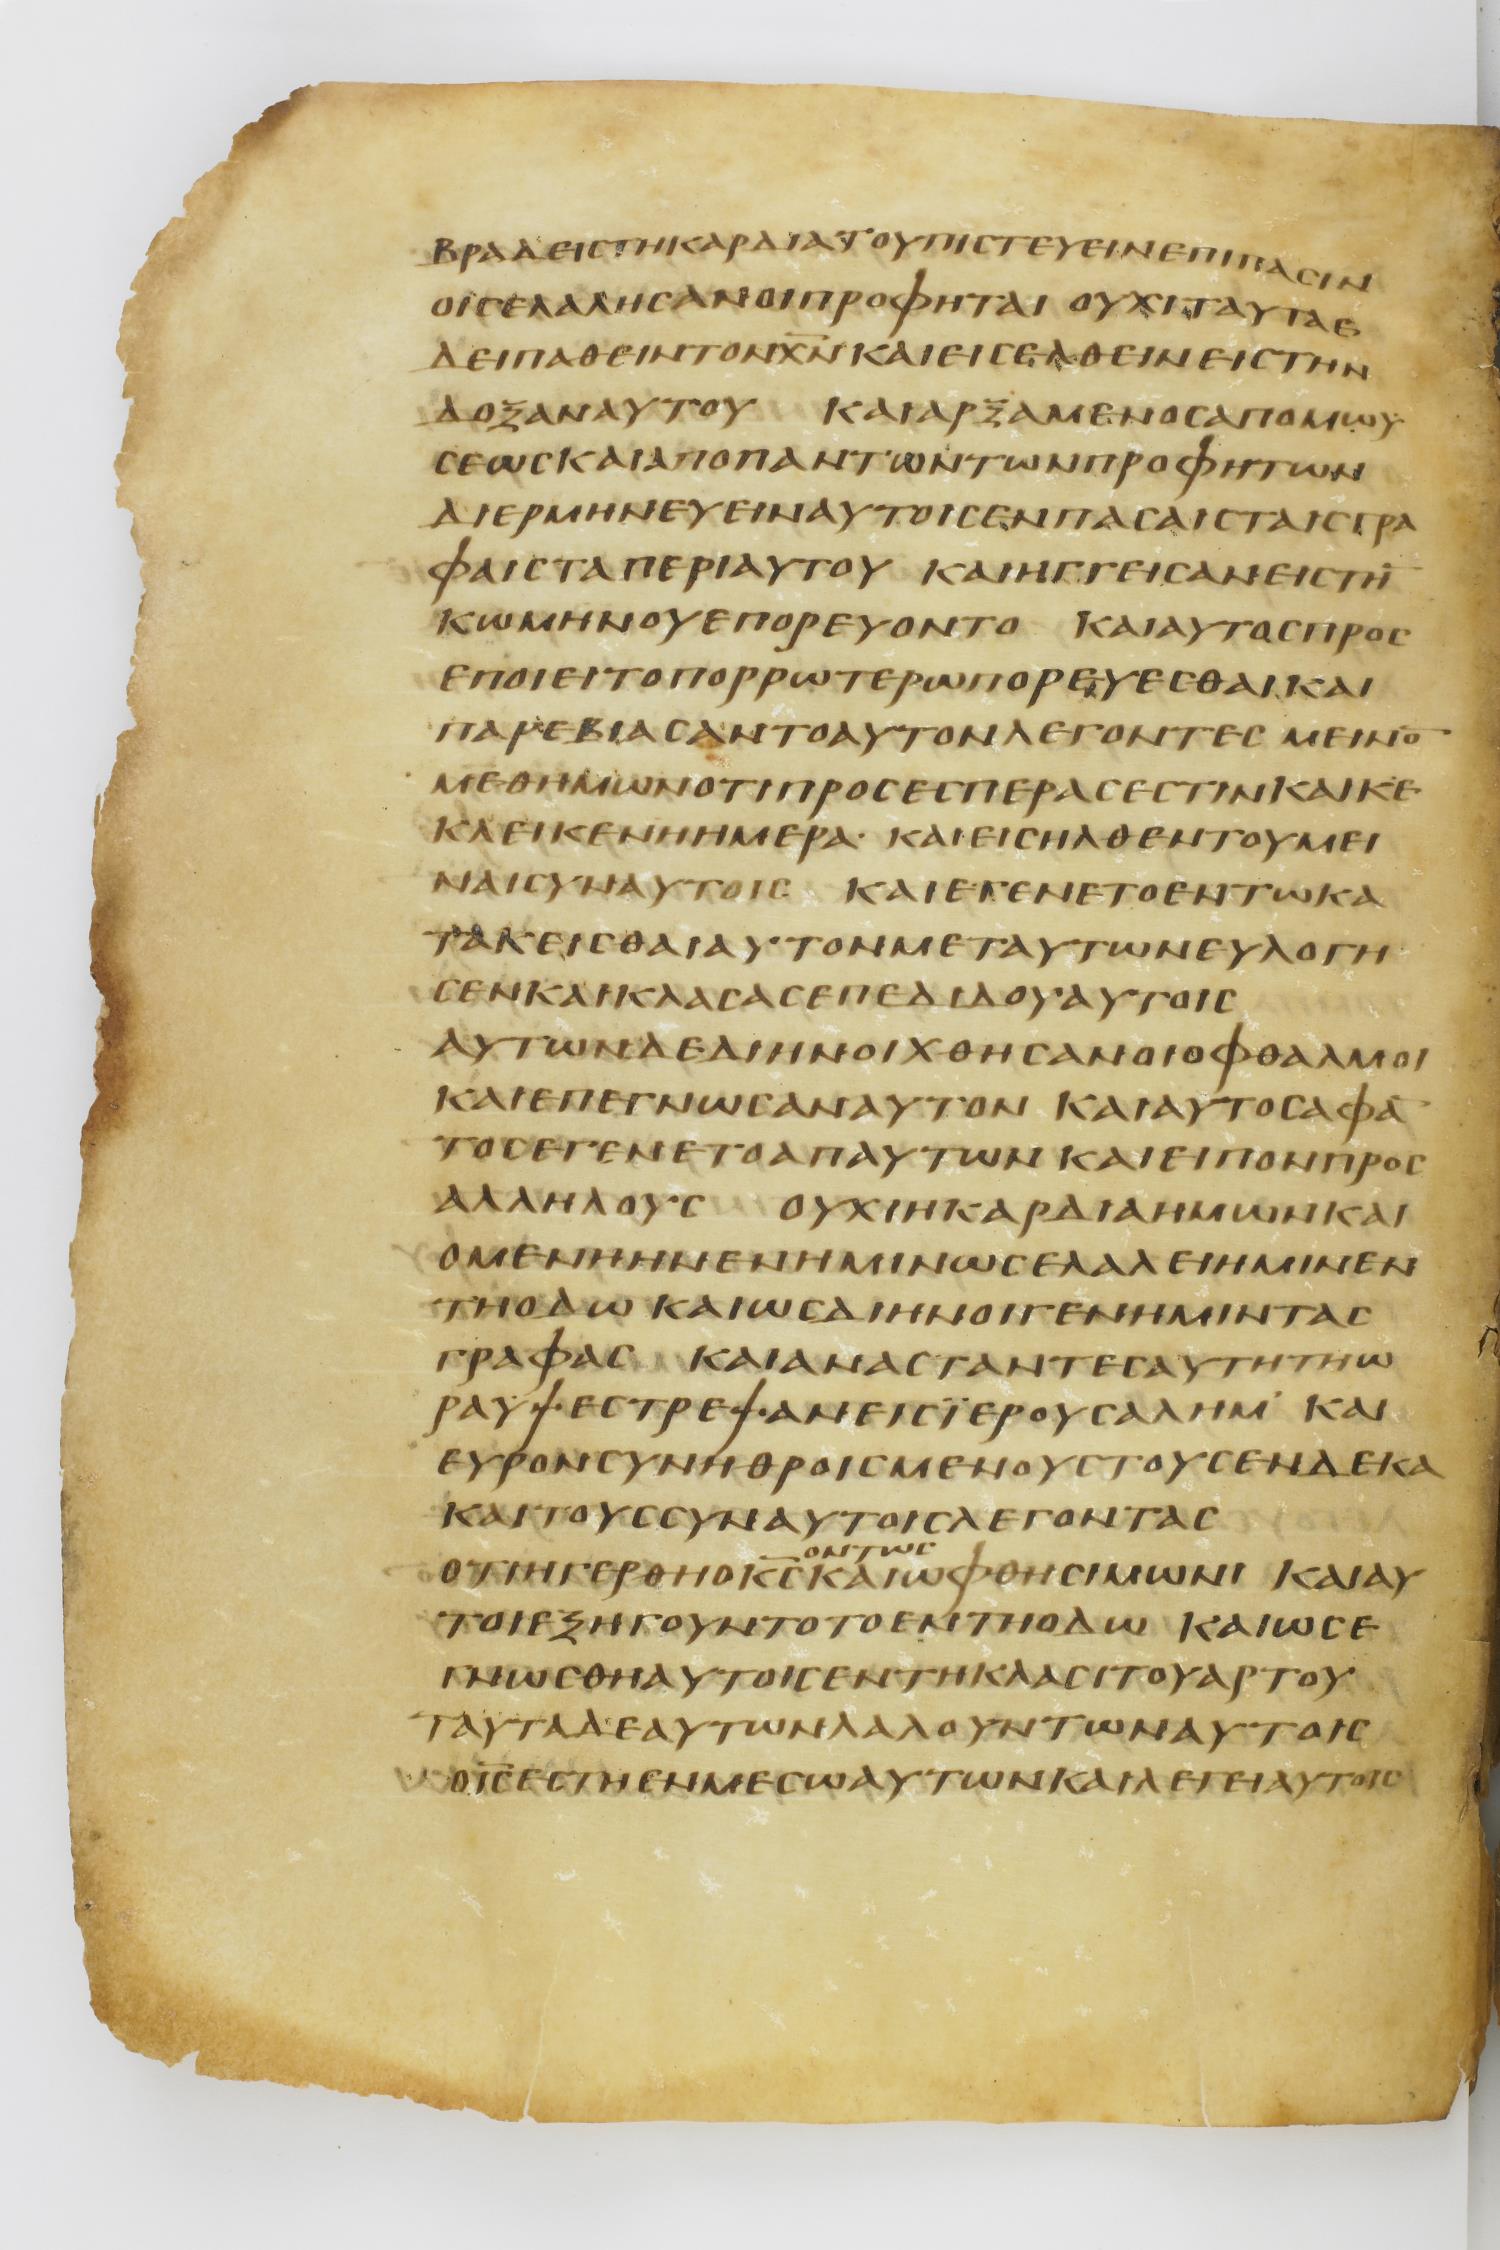 ΒΡΑΔΕΙΣΤΗΚΑΡΔΙΑΤΟΥΠΙΣΤΕΥΕΙΝΕΠΙΠΑΣΙΝ
ΟΙΣΕΛΑΛΗΣΑΝΟΙΠΡΟΦΗΤΑΙ ΟΥΧΙΤΑΥΤΑΕ
ΔΕΙΠΑΘΕΙΝΤΟΝΧ̅Ν̅ΚΑΙΕΙΣΕΛΘΕΙΝΕΙΣΤΗΝ
ΔΟΞΑΝΑΥΤΟΥ ΚΑΙΑΡΞΑΜΕΝΟΣΑΠΟΜΩΥ
ΣΕΩΣΚΑΙΑΠΟΠΑΝΤΩΝΤΩΝΠΡΟΦΗΤΩΝ
ΔΙΕΡΜΗΝΕΥΕΙΝΑΥΤΟΙΣΕΝΠΑΣΑΙΣΤΑΙΣΓΡΑ
ΦΑΙΣΤΑΠΕΡΙΑΥΤΟΥ ΚΑΙΗΓΓΕΙΣΑΝΕΙΣΤΗ̅
ΚΩΜΗΝΟΥΕΠΟΡΕΥΟΝΤΟ ΚΑΙΑΥΤΟΣΠΡΟΣ
ΕΠΟΙΕΙΤΟΠΟΡΡΩΤΕΡΩΠΟΡΕΥΕΣΘΑΙΚΑΙ
ΠΑΡΕΒΙΑΣΑΝΤΟΑΥΤΟΝΛΕΓΟΝΤΕΣ ΜΕΙΝΟ̅
ΜΕΘΗΜΩΝΟΤΙΠΡΟΣΕΣΠΕΡΑΣΕΣΤΙΝΚΑΙΚΕ
ΚΛΕΙΚΕΝΗΗΜΕΡΑ· ΚΑΙΕΙΣΗΛΘΕΝΤΟΥΜΕΙ
ΝΑΙΣΥΝΑΥΤΟΙΣ ΚΑΙΕΓΕΝΕΤΟΕΝΤΩΚΑ
ΤΑΚΕΙΣΘΑΙΑΥΤΟΝΜΕΤΑΥΤΩΝΕΥΛΟΓΗ
ΣΕΝΚΑΙΚΛΑΣΑΣΕΠΕΔΙΔΟΥΑΥΤΟΙΣ
ΑΥΤΩΝΔΕΔΙΗΝΟΙΧΘΗΣΑΝΟΙΟΦΘΑΛΜΟΙ
ΚΑΙΕΠΕΓΝΩΣΑΝΑΥΤΟΝ ΚΑΙΑΥΤΟΣΑΦΑ̅
ΤΟΣΕΓΕΝΕΤΟΑΠΑΥΤΩΝΚΑΙΕΙΠΟΝΠΡΟΣ
ΑΛΛΗΛΟΥΣ ΟΥΧΙΗΚΑΡΔΙΑΗΜΩΝΚΑΙ
ΟΜΕΝΗΗΝΕΝΗΜΙΝΩΣΕΛΑΛΕΙΗΜΙΝΕΝ
ΤΗΟΔΩ ΚΑΙΩΣΔΙΗΝΟΙΓΕΝΗΜΙΝΤΑΣ
ΓΡΑΦΑΣ ΚΑΙΑΝΑΣΤΑΝΤΕΣΑΥΤΗΤΗΩ
ΡΑΥΨΕΣΤΡΕΨΑΝΕΙΣΪΕΡΟΥΣΑΛΗΜ ΚΑΙ
ΕΥΡΟΝΣΥΝΗΘΡΟΙΣΜΕΝΟΥΣΤΟΥΣΕΝΔΕΚΑ
ΚΑΙΤΟΥΣΣΥΝΑΥΤΟΙΣΛΕΓΟΝΤΑΣ
ΟΝΤΩΣ
ΟΤΙΗΓΕΡΘΗΟΚ̅Σ̅ΚΑΙΩΦΘΗΣΙΜΩΝΙ ΚΑΙΑΥ
ΤΟΙΕΞΗΓΟΥΝΤΟΤΟΕΝΤΗΟΔΩ ΚΑΙΩΣΕ
ΓΝΩΣΘΗΑΥΤΟΙΣΕΝΤΗΚΛΑΣΙΤΟΥΑΡΤΟΥ
ΤΑΥΤΑΔΕΑΥΤΩΝΛΑΛΟΥΝΤΩΝΑΥΤΟΙΣ
ΟΙ̅Σ̅ΕΣΤΗΕΝΜΕΣΩΑΥΤΩΝΚΑΙΛΕΓΕΙΑΥΤΟΙΣ